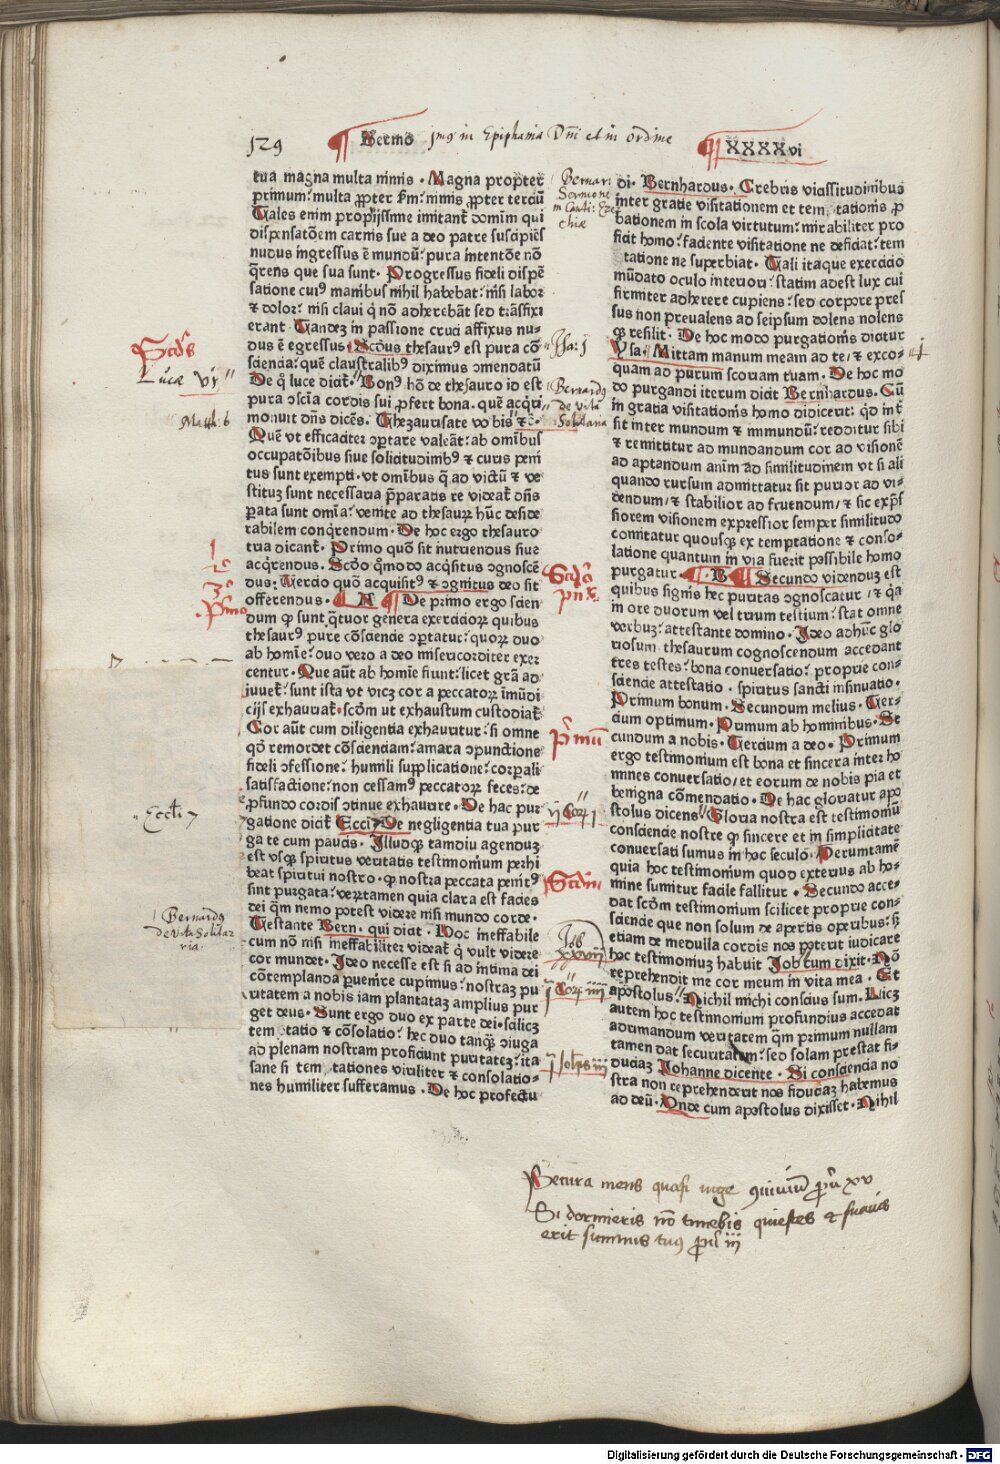 129 Sermo in Epiphania Dñi et in ordine XXXXvi
tua magna multa nimis. Magna propter
primum: multa ꝓpter ẜm: nimis ꝓpter terciũ
Tales enim propriissime imitant᷑ dominũ qui
dispensatõem carnis sue a deo patre suscipiẽs
nudus ingressus ẽ mundũ: pura intentõe nõ
q̃rens que sua sunt. Progressus fideli dispẽ
satione cuiꝰ manibus nihil habebat: nisi labor
⁊ dolor: nisi claui q̃ nõ adherebãt sed trãsfixi
erant. Tandez in passione cruci affixus nu-
dus ẽ egressus. Scḋus thesaurꝰ est pura cõ
sciencia: quẽ claustralibꝰ diximus ɔmendatũ
De q̃ luce dicit᷑. Bonꝰ hõ de thesauro id est
pura ɔsciẽ cordis sui ꝓfert bona. quẽ acq̇ri
monuit dñs dicẽs. Thezaurisate vobis ⁊c.
Quẽ vt efficaciter ɔptare valeãt: ab omĩbus
occupatõibus siue solicitudinibꝰ ⁊ curis peni
tus sunt exempti. vt omĩbus q̃ ad victũ ⁊ ve
stituz sunt necessaria p̃paratis re videat᷑ dñs
Parata sunt omĩa: venite ad thesaurꝝ hũc deside
rabilem conq̃rendum. De hoc ergo thesauro
tria dicant᷑. Primo quõ sit nutriendus siue
acq̃rendus. Scḋo q̃modo acq̃situs ɔgnoscẽ
dus: Tercio quõ acquisitꝰ ⁊ ɔgnitus deo sit
offerendus. A De primo ergo scien
dum ꝙ sunt q̃tuor genera exercicioꝝ quibus
thesaurꝰ pure cõsciencie ɔptatur: quoꝝ duo
ab homĩe: duo vero a deo misericorditer exer
centur. Que aũt ab homĩe fiunt: licet grã ad
iuuet᷑: sunt ista vt vicz cor a peccatoꝝ ĩmũdi
cijs exhauriat᷑. scḋm ut exhaustum custodiat᷑
Cor aũt cum diligentia exhauritur: si omne
qḋ remordet cõscienciam: amara ɔpunctione
fideli ɔfessione: humili supplicatione: corꝑali
satisfactione: non cessamꝰ peccatoꝝ feces: de
ꝓfundo cordis ɔtinue exhaurire. De hac pur
gatione dicit᷑ Ecci 7 De negligentia tua pur
ga te cum paucis. Illudqꝫ tamdiu agenduz
est vsqꝫ spiritus veritatis testimonium perhi
beat spiritui nostro. ꝙ nostra peccata penitꝰ
sint purgata: verꝝtamen quia clara est facies
dei q̃m nemo potest videre nisi mundo corde.
Testante Bern. qui dicit. Hoc ineffabile
cum nõ nisi ineffabiliter videat᷑ q̇ vult videre
cor mundet. Ideo necesse est si ad intima dei
cõtemplanda ꝑuenire cupimus: nostraz pu
ritatem a nobis iam plantataz amplius pur
get deus. Sunt ergo duo ex parte dei. scilicz
temptatio ⁊ cõsolatio: hec duo tanqꝫ ɔiuga
ad plenam nostram proficiunt puritatez: ita
sane si temptationes viriliter ⁊ consolatio-
nes humiliter sufferamus. De hoc profectu
di. Bernhardus. Crebris vicissitudinibus
inter gratie visitationem et temptationis ꝓ
bationem in scola virtutum: mirabiliter pro
ficit homo: faciente visitatione ne deficiat: tem
ptatione ne superbiat. Tali itaque exercicio
mũdato oculo interiori: statim adest lux cui
firmiter adherere cupiens: sed corpore pres
sus non preualens ad seipsum dolens nolens
qꝫ resilit. De hoc modo purgationis dicitur
Ysa. i Mittam manum meam ad te: ⁊ exco-
quam ad purum scoriam tuam. De hoc mo
do purgandi iterum dicit Bernhardus. Cũ
in gratia visitationis homo didicerit: qḋ int᷑
sit inter mundum ⁊ immundũ: redditur sibi
⁊ remittitur ad mundandum cor ad visionẽ
ad aptandum anim̃ ad similitudinem vt si ali
quando rursum admittatur sit purior ad vi-
dendum/ ⁊ stabilior ad fruendum/ ⁊ sic exp̃s
siorem visionem expressior semper similitudo
comitatur quousqꝫ ex temptatione ⁊ conso-
latione quantum in via fuerit possibile homo
purgatur. B Secundo videnduz est
quibus signis hec puritas ɔgnoscatur/ ⁊ q̃a
in ore duorum vel trium testium: stat omne
verbuz: attestante domino. Ideo adhuc glo
riosum thesaurum cognoscendum accedant
tres testes: bona conuersatio: proprie con-
sciencie attestatio. spiritus sancti insinuatio.
Primum bonum. Secundum melius. Ter-
cium optimum. Primum ab hominibus. Se
cundum a nobis. Tercium a deo. Primum
ergo testimonium est bona et sincera inter ho
mines conuersatio/ et eorum de nobis pia et
benigna cõmendatio. De hac gloriatur apo
stolus dicens Gloria nostra est testimoniũ
consciencie nostre ꝙ sincere et in simplicitate
conuersati sumus in hoc seculo. Verumtamẽ
quia hoc testimonium quod exterius ab ho-
mine sumitur facile fallitur. Secundo acce-
dat scḋm testimonium scilicet proprie con-
sciencie que non solum de apertis operibus: sꝫ
etiam de medulla cordis nos poterit iudicare
hoc testimoniuz habuit Job cum dixit. Nõ
reprehendit me cor meum in vita mea. Et
apostolus. Nichil michi conscius sum. Licz
autem hoc testimonium profundius accedat
ad rimandum veritatem q̃m primum nullam
tamen dat securitatum: sed solam prestat fi-
duciaz Johanne dicente. Si consciencia no
stra non reprehenderit nos fiduciaz habemus
ad deũ. Unde cum apostolus dixisset. Nihil
Scḋs
Luce vi
Matth: 6
Eccli 7
Bernardꝰ
de vita Solita
ria.
Bernar:
Sermone
in Canti: Eze
chie
Isa: j
Bernardꝰ
de vita
Solitaria
Scḋo
Primũ
ij Cor j
Scḋm
Job
xxvij
j Cor iiij
j Johis iij
Secura mens quasi iuge ɔuiuiũ ꝓũ xv
Si dormieris nõ timebis quiesces et suauis
erit sumnus tuꝰ ꝓũ iij
Digitalisierung gefördert durch die Deutsche Forschungsgemeinschaft - DFG